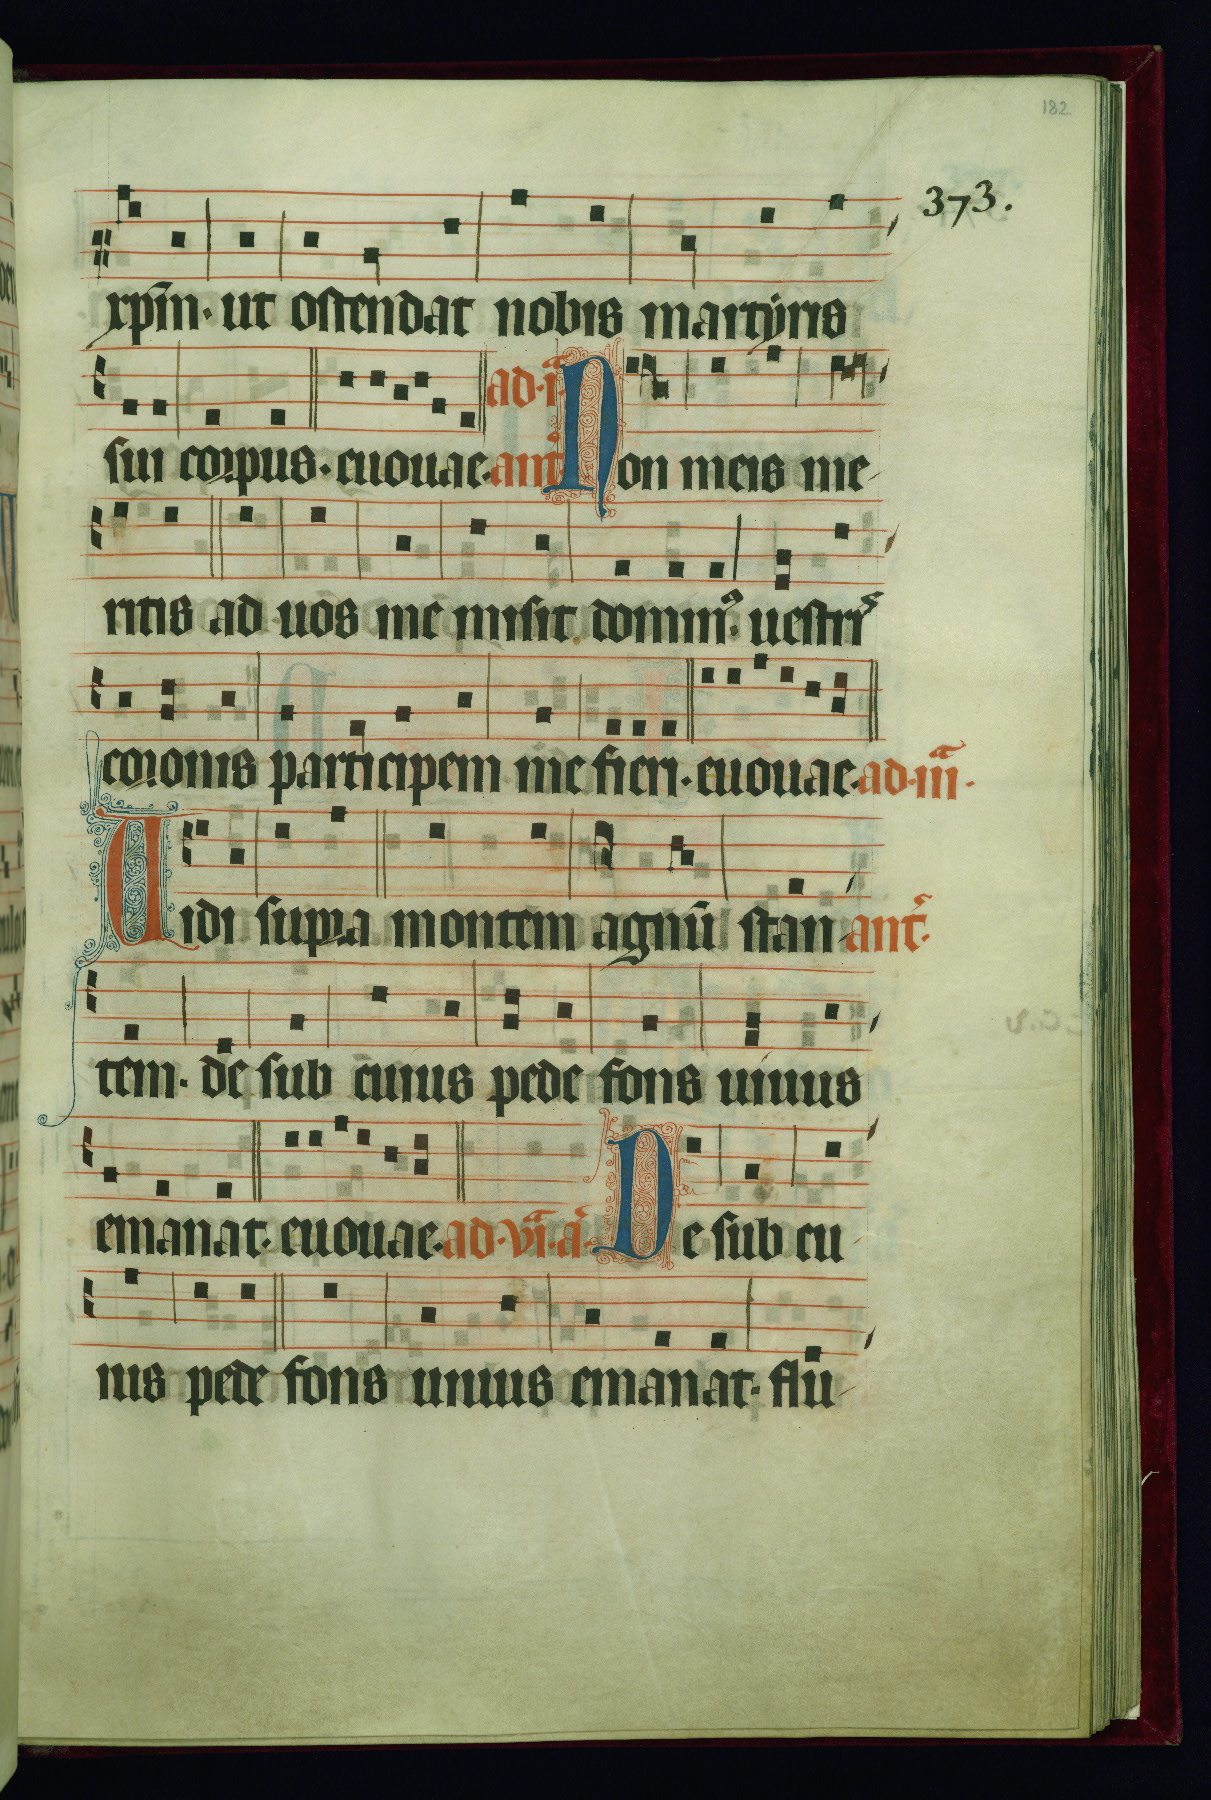 182
373.
xp̄m· ut ostendat nobis martyris
sui corpus· euouae· ad·i·̄ ant̄ Non meis me-
ritis ad uos me misit dominꝰ· uestrꝭ
coronis participem me fieri· euouae· ad·iii·̄
Uidi supra montem agnū stan- ant̄·
tem· de sub cuius pede fons uiuus
emanat· euouae· ad·vi·̄ a· De sub cu-
ius pede fons uiuus emanat· flu-